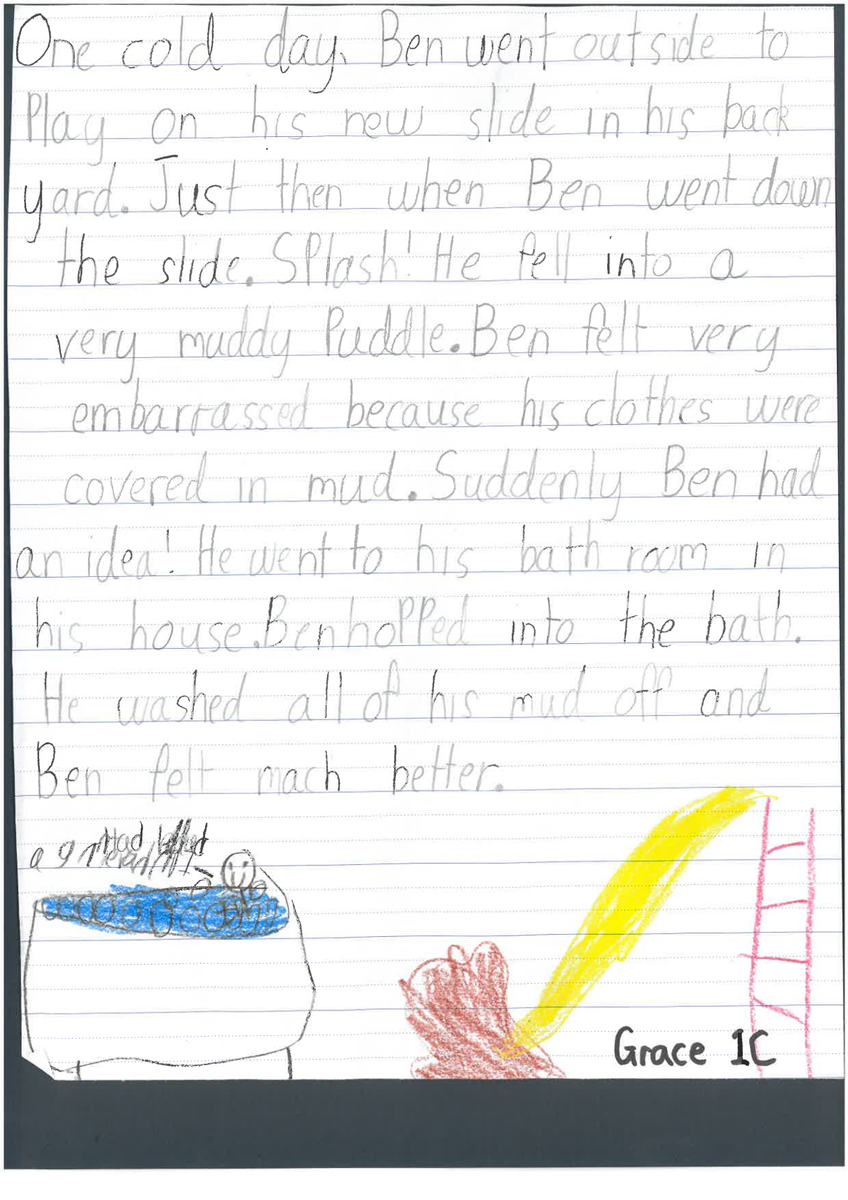 One cold day, Ben went outside to
Play on his new slide in his back
yard. Just then when Ben went down
the slide. SPlash! He fell into a
very muddy Puddle. Ben felt very
embarrassed because his clothes were
covered in mud. Suddenly Ben had
an idea! He went to his bath room in
his house. Ben hoPPed into the bath.
He washed all of his mud off and
Ben felt mach better.
Grace 1C